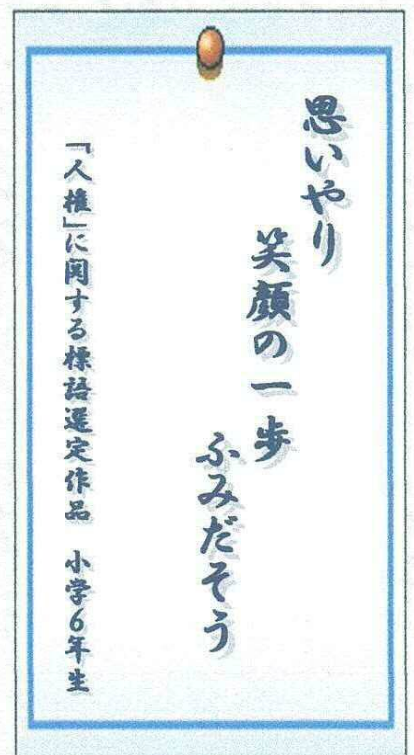 思いやり
笑顔の一歩
ふみだそう
「人権」に関する標語選定作品　小学6年生